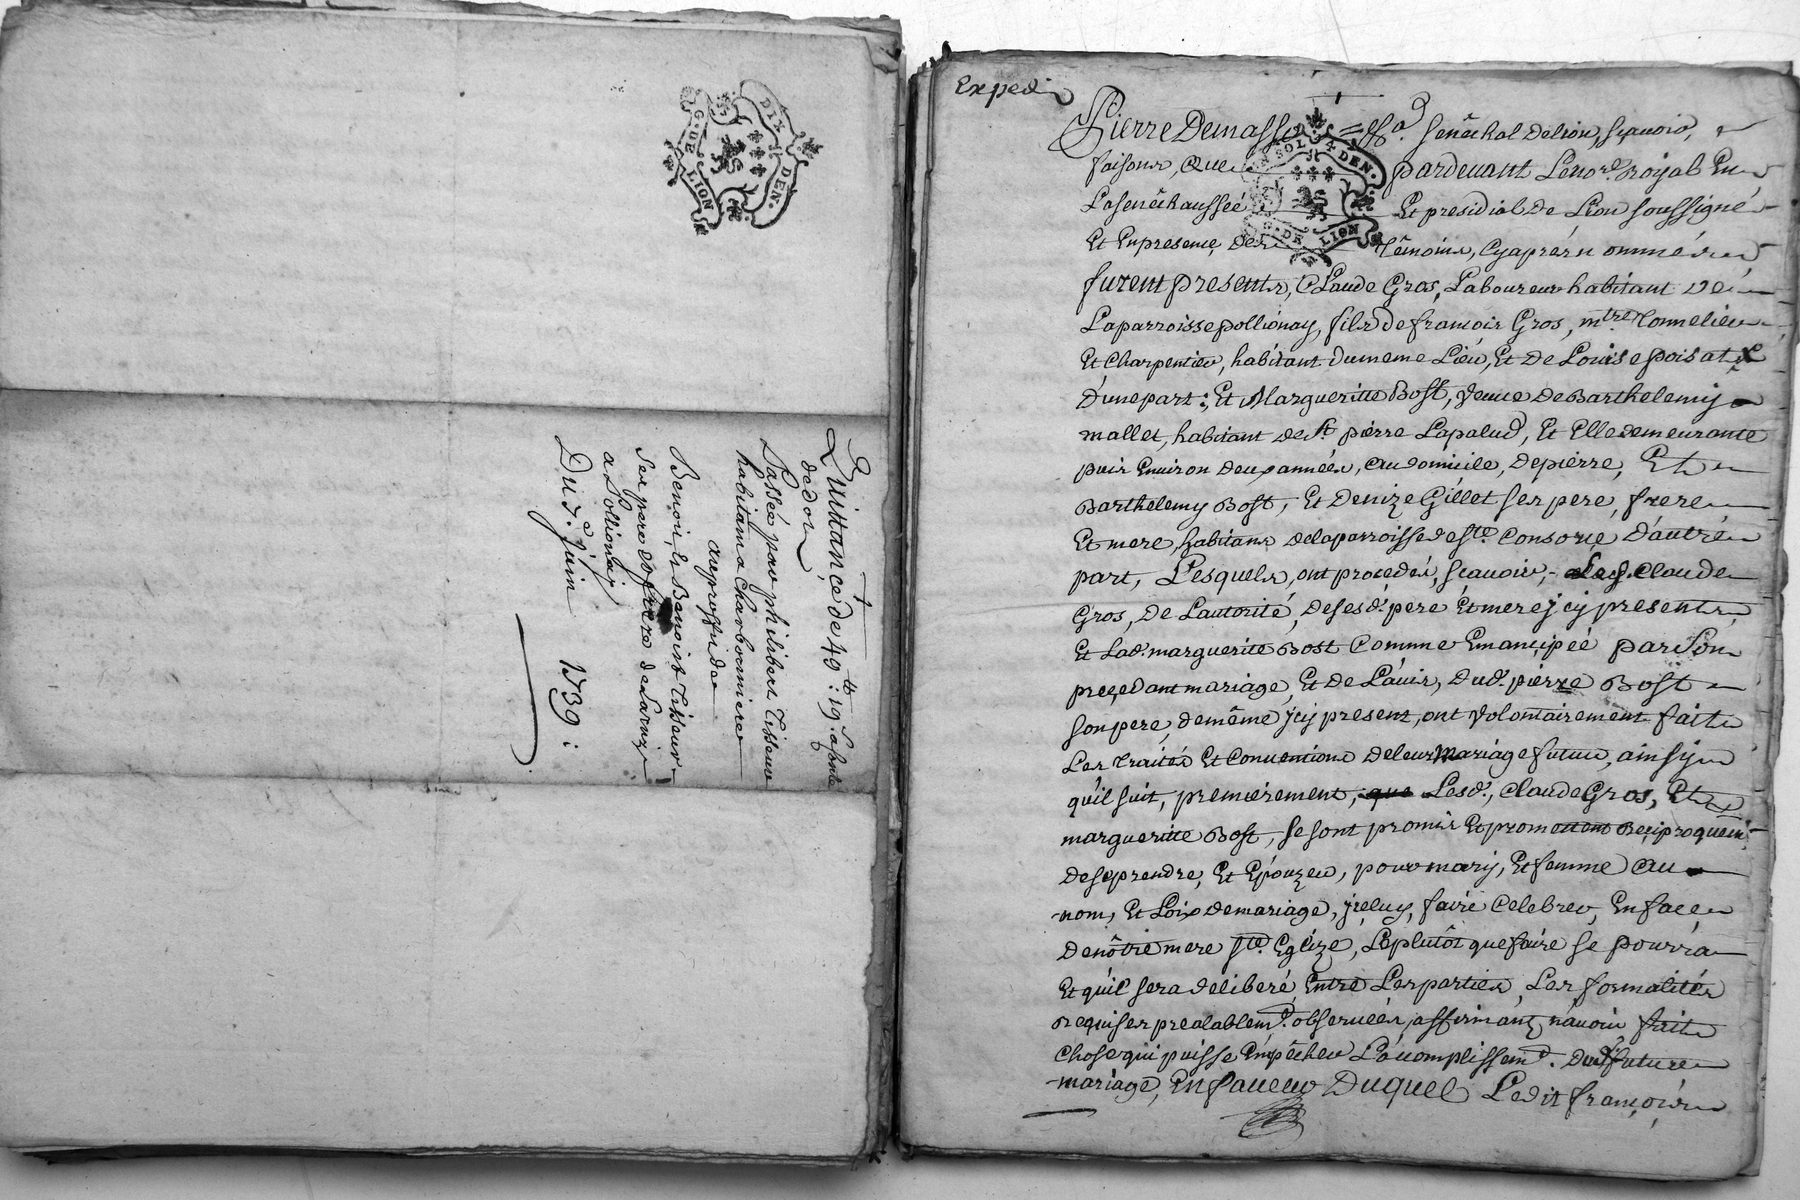 G. DE LION
DIX DEN.
Quittance de 49 lt: 19 s. après
de dot
Passée par philibert Tisseur
habitant a Charbonnieres
au proffit de
Benoit, & Benoist Tisseur
ses pere & frere
a Pollionay
Du 7e. juin 1739:
Expedié
UN SOL 4 DEN.
G. DE LION
Pierre Demasso Senéchal de Lion, sçavoir,
faisons, que pardevant Le nore. royal En
La senéchaussée Et presidial de Lion soussigné
Et En presence des témoins, cy aprés nommés
furent presents, Claude Gros, Laboureur habitant De
La parroisse pollionay, fils de francois Gros, mtre. Tonnelier
Et Charpentier, habitant du meme Lieu, Et de Louise poisat
D'une part; Et Margueritte Bost, veuve de Barthelemy
mallet, habitant de St. pierre Lapalud, Et Elle demeurante
puis Environ deux années, au domicile, de pierre, Et
Barthelemy Bost, Et Denize Gillet ses pere, frere
Et mere, habitans de la parroisse de Ste. Consorce D'autre
part, Lesquels, ont procedés, scavoir, Led. Claude
Gros, de L'autorité, de sesd. pere Et mere jcy presents,
Et Lad. marguerite Bost Comme Emancipée par son
precedant mariage, Et de L'avis, dud. pierre Bost
son pere, de même jcy present, ont volontairement fait
Les traités Et Conventions de leur Mariage futur, ainsy
qu'il suit, premierement, que Lesd., Claude Gros, Et
margueritte Bost, se sont promis Et promettent Reciproquemt.
de se prendre, Et Epouzer, pour mary, Et femme au
nom, Et Loix de mariage, jceluy, faire Celebrer, En face
de nôtre mere Ste. Eglize, Le plutôt que faire se pourra
Et qu'il sera deliberé Entre Les parties, Les formalités
requises prealablemt. observées, affirmant, n'avoir fait
chose qui puisse Empêcher L'acomplissemt. dud. future
mariage, En faveur Duquel Ledit françois